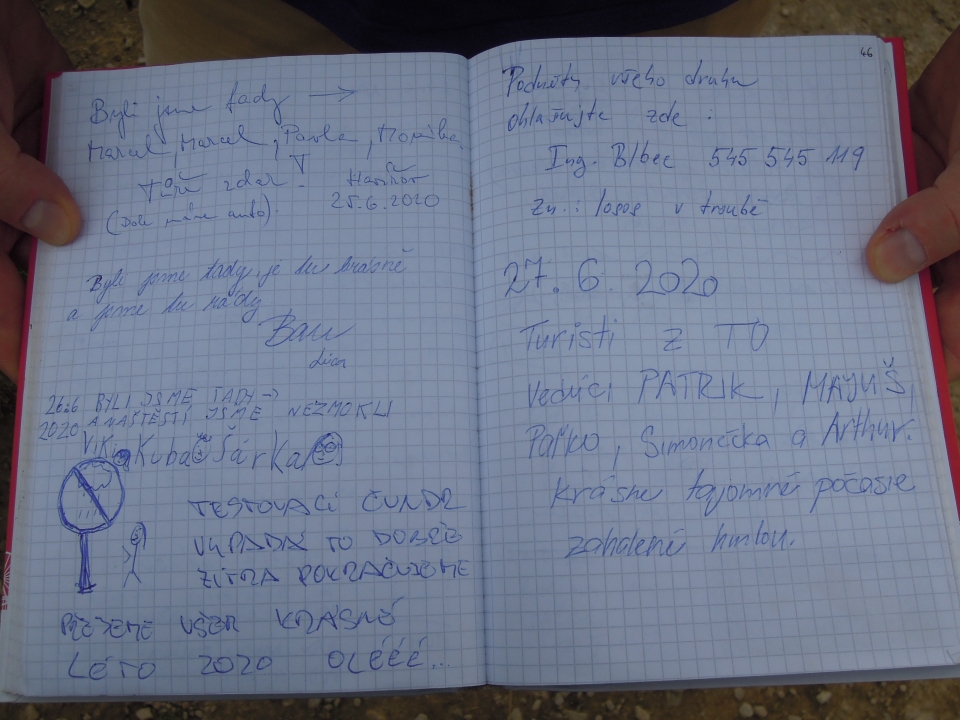 Byli jsme tady →
Marcel, Marcel, Pavla, Monika,
Tůře zdar!
(Dole máme auto).
25.6.2020
Byli jsme tady, je tu krásně
a jsme tu rády
26.6 BYLI JSME TADY →
2020 A NAŠTĚSTÍ JSME NEZMOKLI
Viki Kuba Šárka
TESTOVACÍ ČUNDR
VYPADÁ TO DOBŘE
ZÍTRA POKRAČUJEME
PŘEJEME VŠEM KRÁSNÉ
LÉTO 2020 OLÉÉÉ...
46
Podněty všeho druhu
ohlašujte zde :
Ing. Blbec 545 545 119
Zn.: losos v troubě
27. 6. 2020
Turisti z TO
Vedúci PATRIK, MAJUŠ,
Paľko, Simončička a Arthur.
Krásne tajomné počasie
zahalené hmlou.